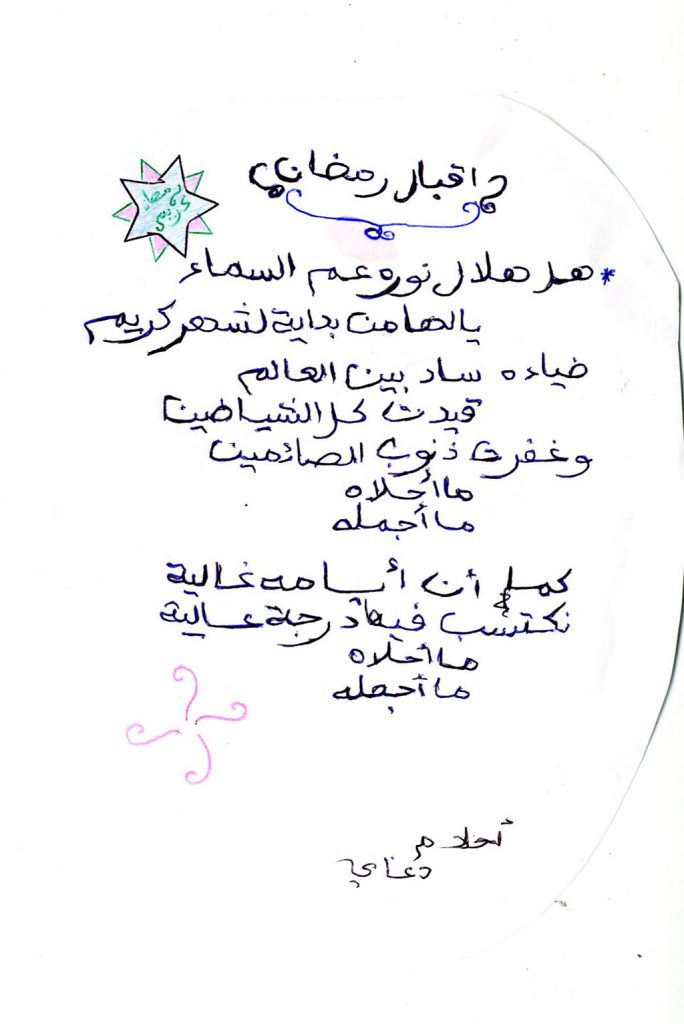 اقبال رمضان
رمضان
كريم
* هل هلال نوره عم السماء
يالها من بداية لشهر كريم
ضياءه ساد بين العالم
قيدت كل الشياطين
وغفرت ذنوب الصائمين
ما أحلاه
ما أجمله
كما أن أيامه غالية
نكتسب فيها درجة عالية
ما أحلاه
ما أجمله
أحلام